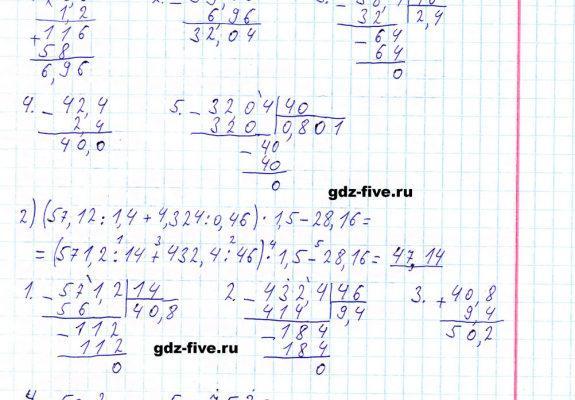 1,2
+ 116
58
6,96
6,96
32,04
32
2,4
- 64
64
0
4. - 42,4
2,4
40,0
5. - 32,04 | 40
320 | 0,801
- 40
40
0
gdz-five.ru
2) (57,12 : 1,4 + 4,324 : 0,46) · 1,5 - 28,16 =
= (571,2 : 14 + 432,4 : 46) · 1,5 - 28,16 = 47,14
1. - 571,2 | 14
56 | 40,8
- 112
112
0
2. - 432,4 | 46
414 | 9,4
- 184
184
0
3. + 40,8
9,4
50,2
gdz-five.ru